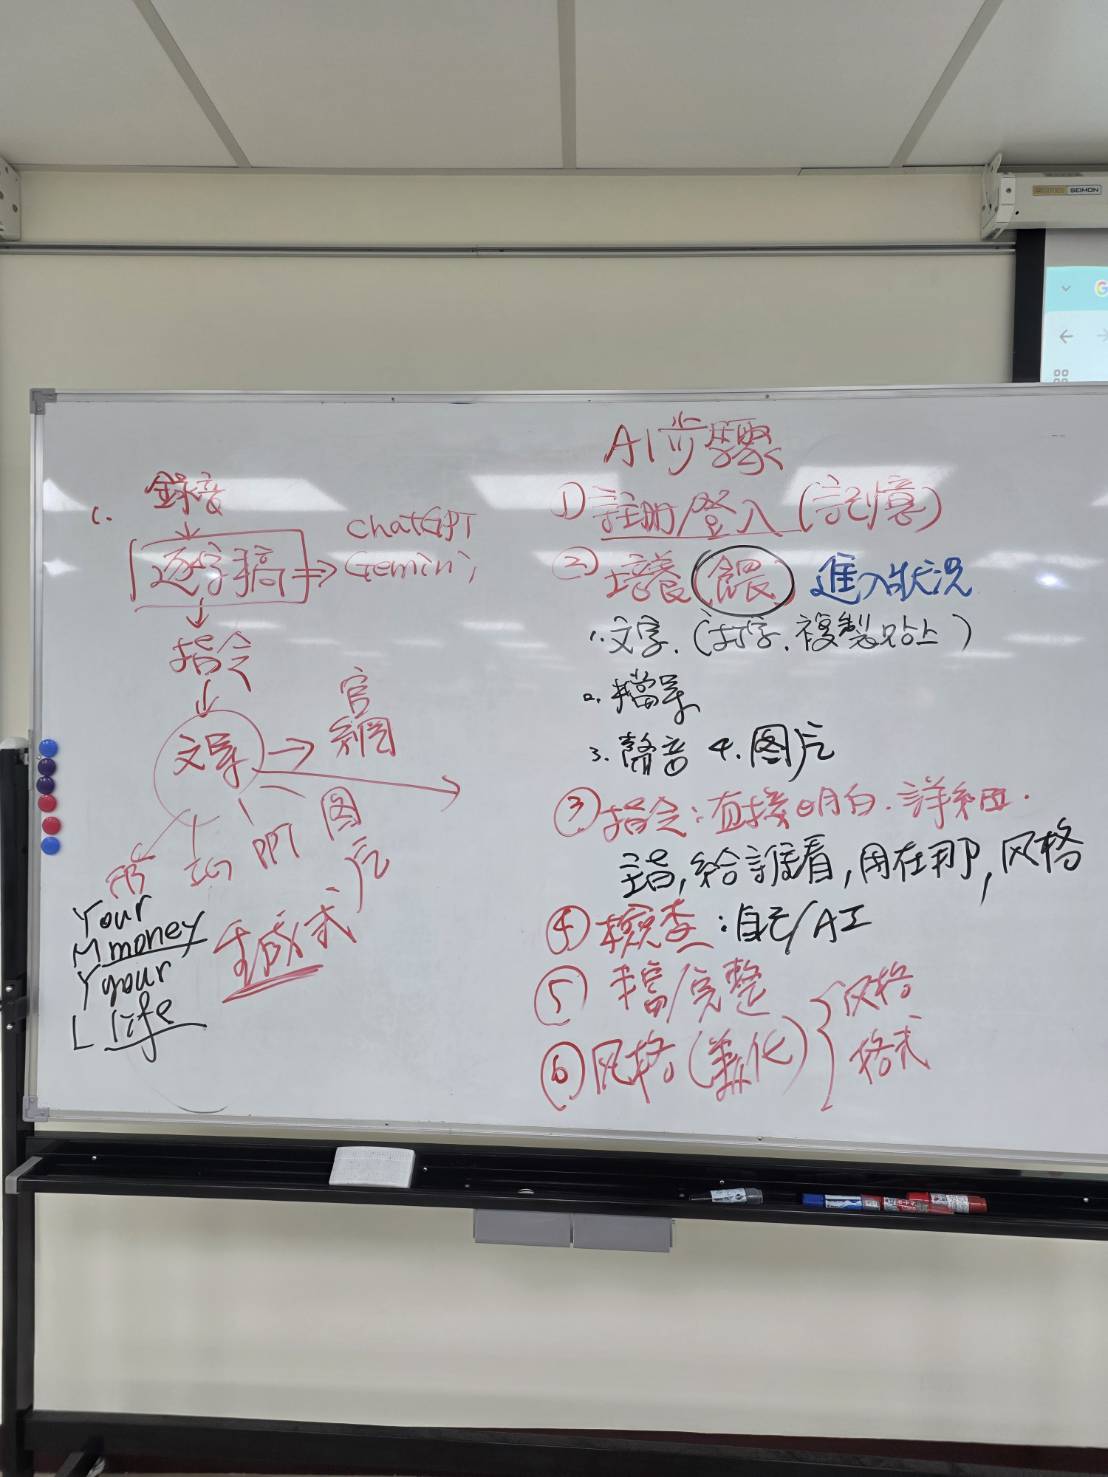 1. 錄音
逐字稿 → chatGPT
Gemini
指令
文案 → 官網
图片
PPT
生成式
Your
M money
Y your
L life
AI步驟
① 註冊/登入 (記憶)
② 培養 (餵) 進入狀況
1. 文字. (打字. 複製貼上)
2. 檔案
3. 聲音 4. 图片
③ 指令: 直接明白. 詳細.
主旨, 給誰看, 用在那, 风格
④ 檢查: 自己/AI
⑤ 檔/完整
⑥ 风格 (美化) { 风格
格式
SEIMON